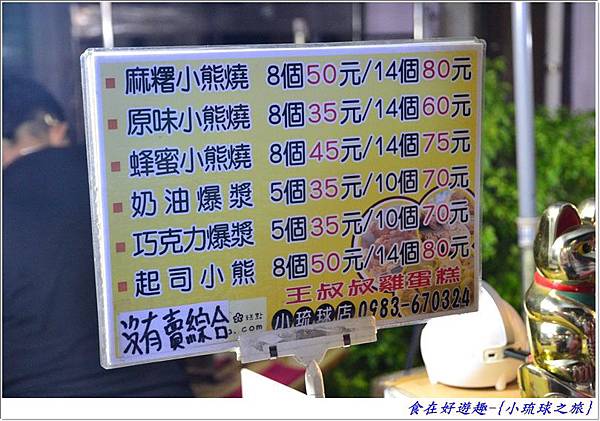 麻糬小熊燒 8個50元/14個80元
原味小熊燒 8個35元/14個60元
蜂蜜小熊燒 8個45元/14個75元
奶油爆漿 5個35元/10個70元
巧克力爆漿 5個35元/10個70元
起司小熊 8個50元/14個80元
王叔叔雞蛋糕
沒有賣綜合 小琉球店 0983-670324
.com
食在好遊趣-{小琉球之旅}